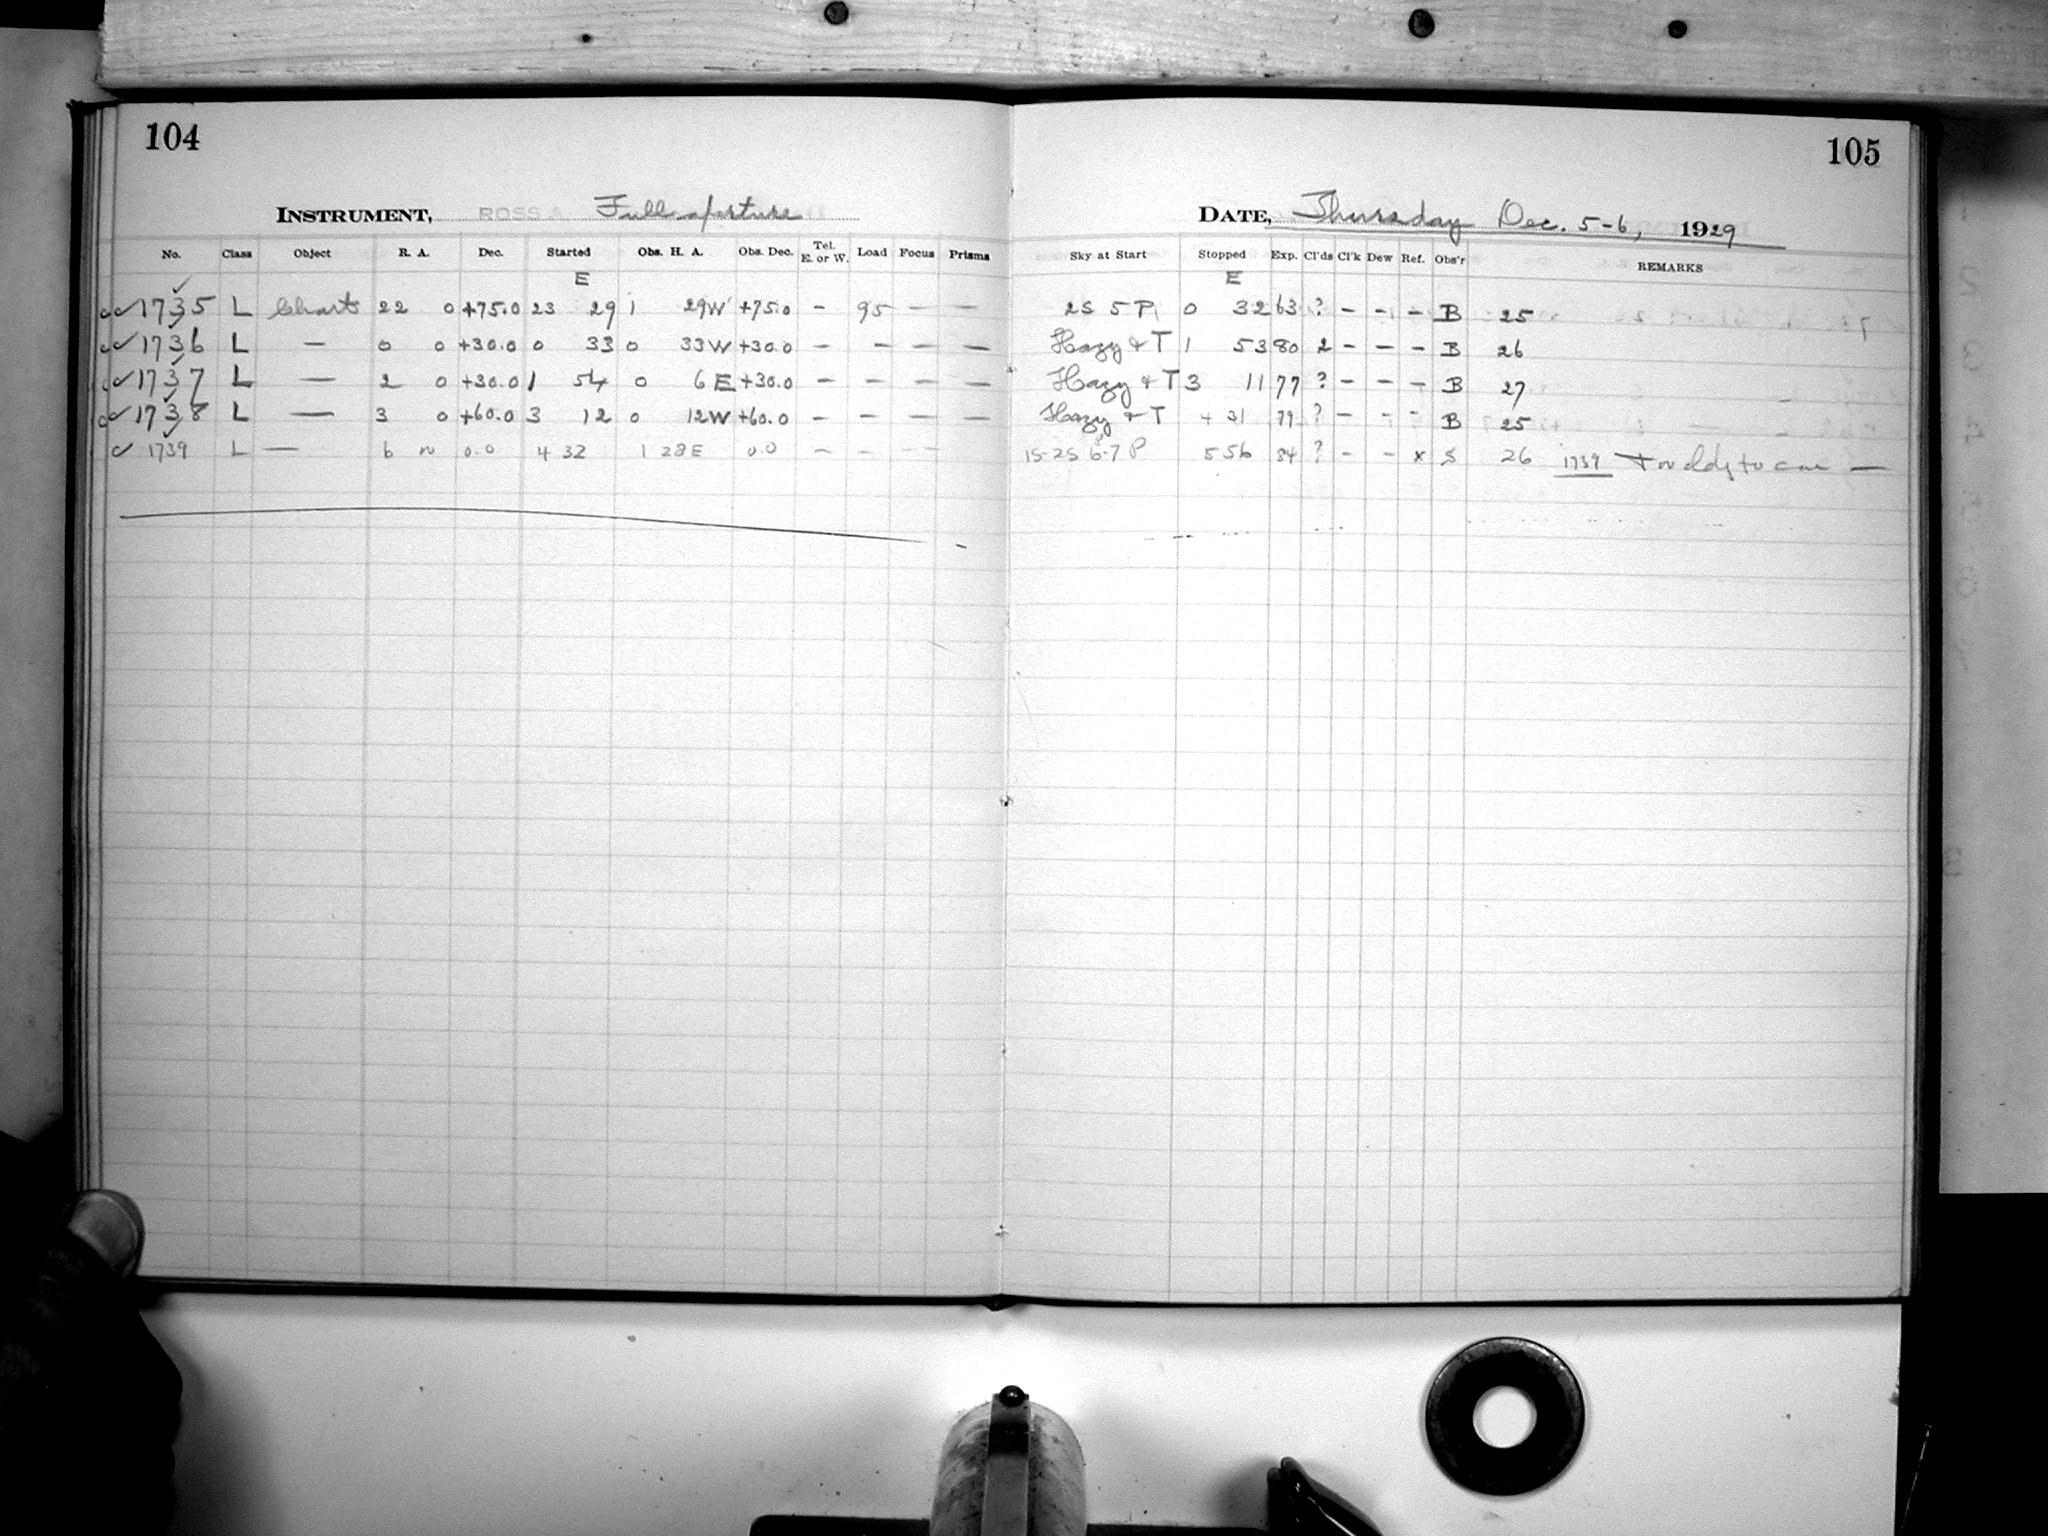 104
105
INSTRUMENT, ROSS A Full aperture
DATE, Thursday Dec. 5-6, 1929
No. Class Object R. A. Dec. Started Obs. H. A. Obs. Dec. Tel. E. or W. Load Focus Prisms Sky at Start Stopped Exp. Cl'ds Cl'k Dew Ref. Obs'r REMARKS
E E
✓ 1735 L Charts 22 0 +75.0 23 29 1 29W +75.0 — 95 — — 2S 5 P 0 32 63 ? — — — B 25
✓ 1736 L — 0 0 +30.0 0 33 0 33W +30.0 — — — — Hazy & T 1 53 80 2 — — — B 26
✓ 1737 L — 2 0 +30.0 1 54 0 6E +30.0 — — — — Hazy & T 3 11 77 ? — — — B 27
✓ 1738 L — 3 0 +60.0 3 12 0 12W +60.0 — — — — Hazy & T 4 31 79 ? — — — B 25
✓ 1739 L — 6 0.0 4 32 1 28E 0.0 — — — — 1S-2S 6-7 P 5 56 84 ? — — x S 26 1739 to